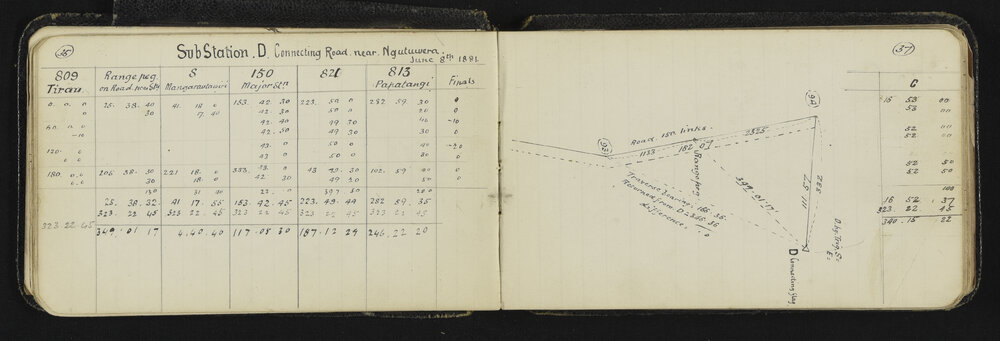 SubStation. D. Connecting Road. near. Ngutuwera.
June 8th 1891
809 Range peg. 8 150 821 813 Finals
Tirau. on Road. Mangarautawi Major Stn Papatangi
0. 0. 0 25. 38. 40 41. 18. 0 153. 42. 30 223. 50 0 282 59. 30 0
0 30 17. 40 42. 30 50 0 20 0
60. 0. 0 42. 40 49 30 40 -10
-10 42. 50 49 30 30 0
120. 0 43. 0 50 0 40
0. 0 43 0 50 0 30 0
180. 0.0 205 38. 30 221 18. 0 43 102. 59 40 0
0.0 30 18. 0 42. 30 49 30 50 0
130 31 40 22. 0
25. 38. 32 41 17. 55 153. 42. 45 223. 49. 44 282 59. 35
323. 22 45 323 22. 45 323 22 45 323 22 45 323 22 45
323. 22. 45
349. 01 17 4. 40. 40 117. 05 30 187. 12 29 246. 22 20
37
C
16 53 00
53 00
52 00
52 00
52 50
52 50
100
16 52 37
323. 22 45
340. 15 22
Road 150 links.
1133
182
Range peg
349. 01. 17
Traverse bearing. 166 35
Returned from D
difference.
282
D Connecting flag